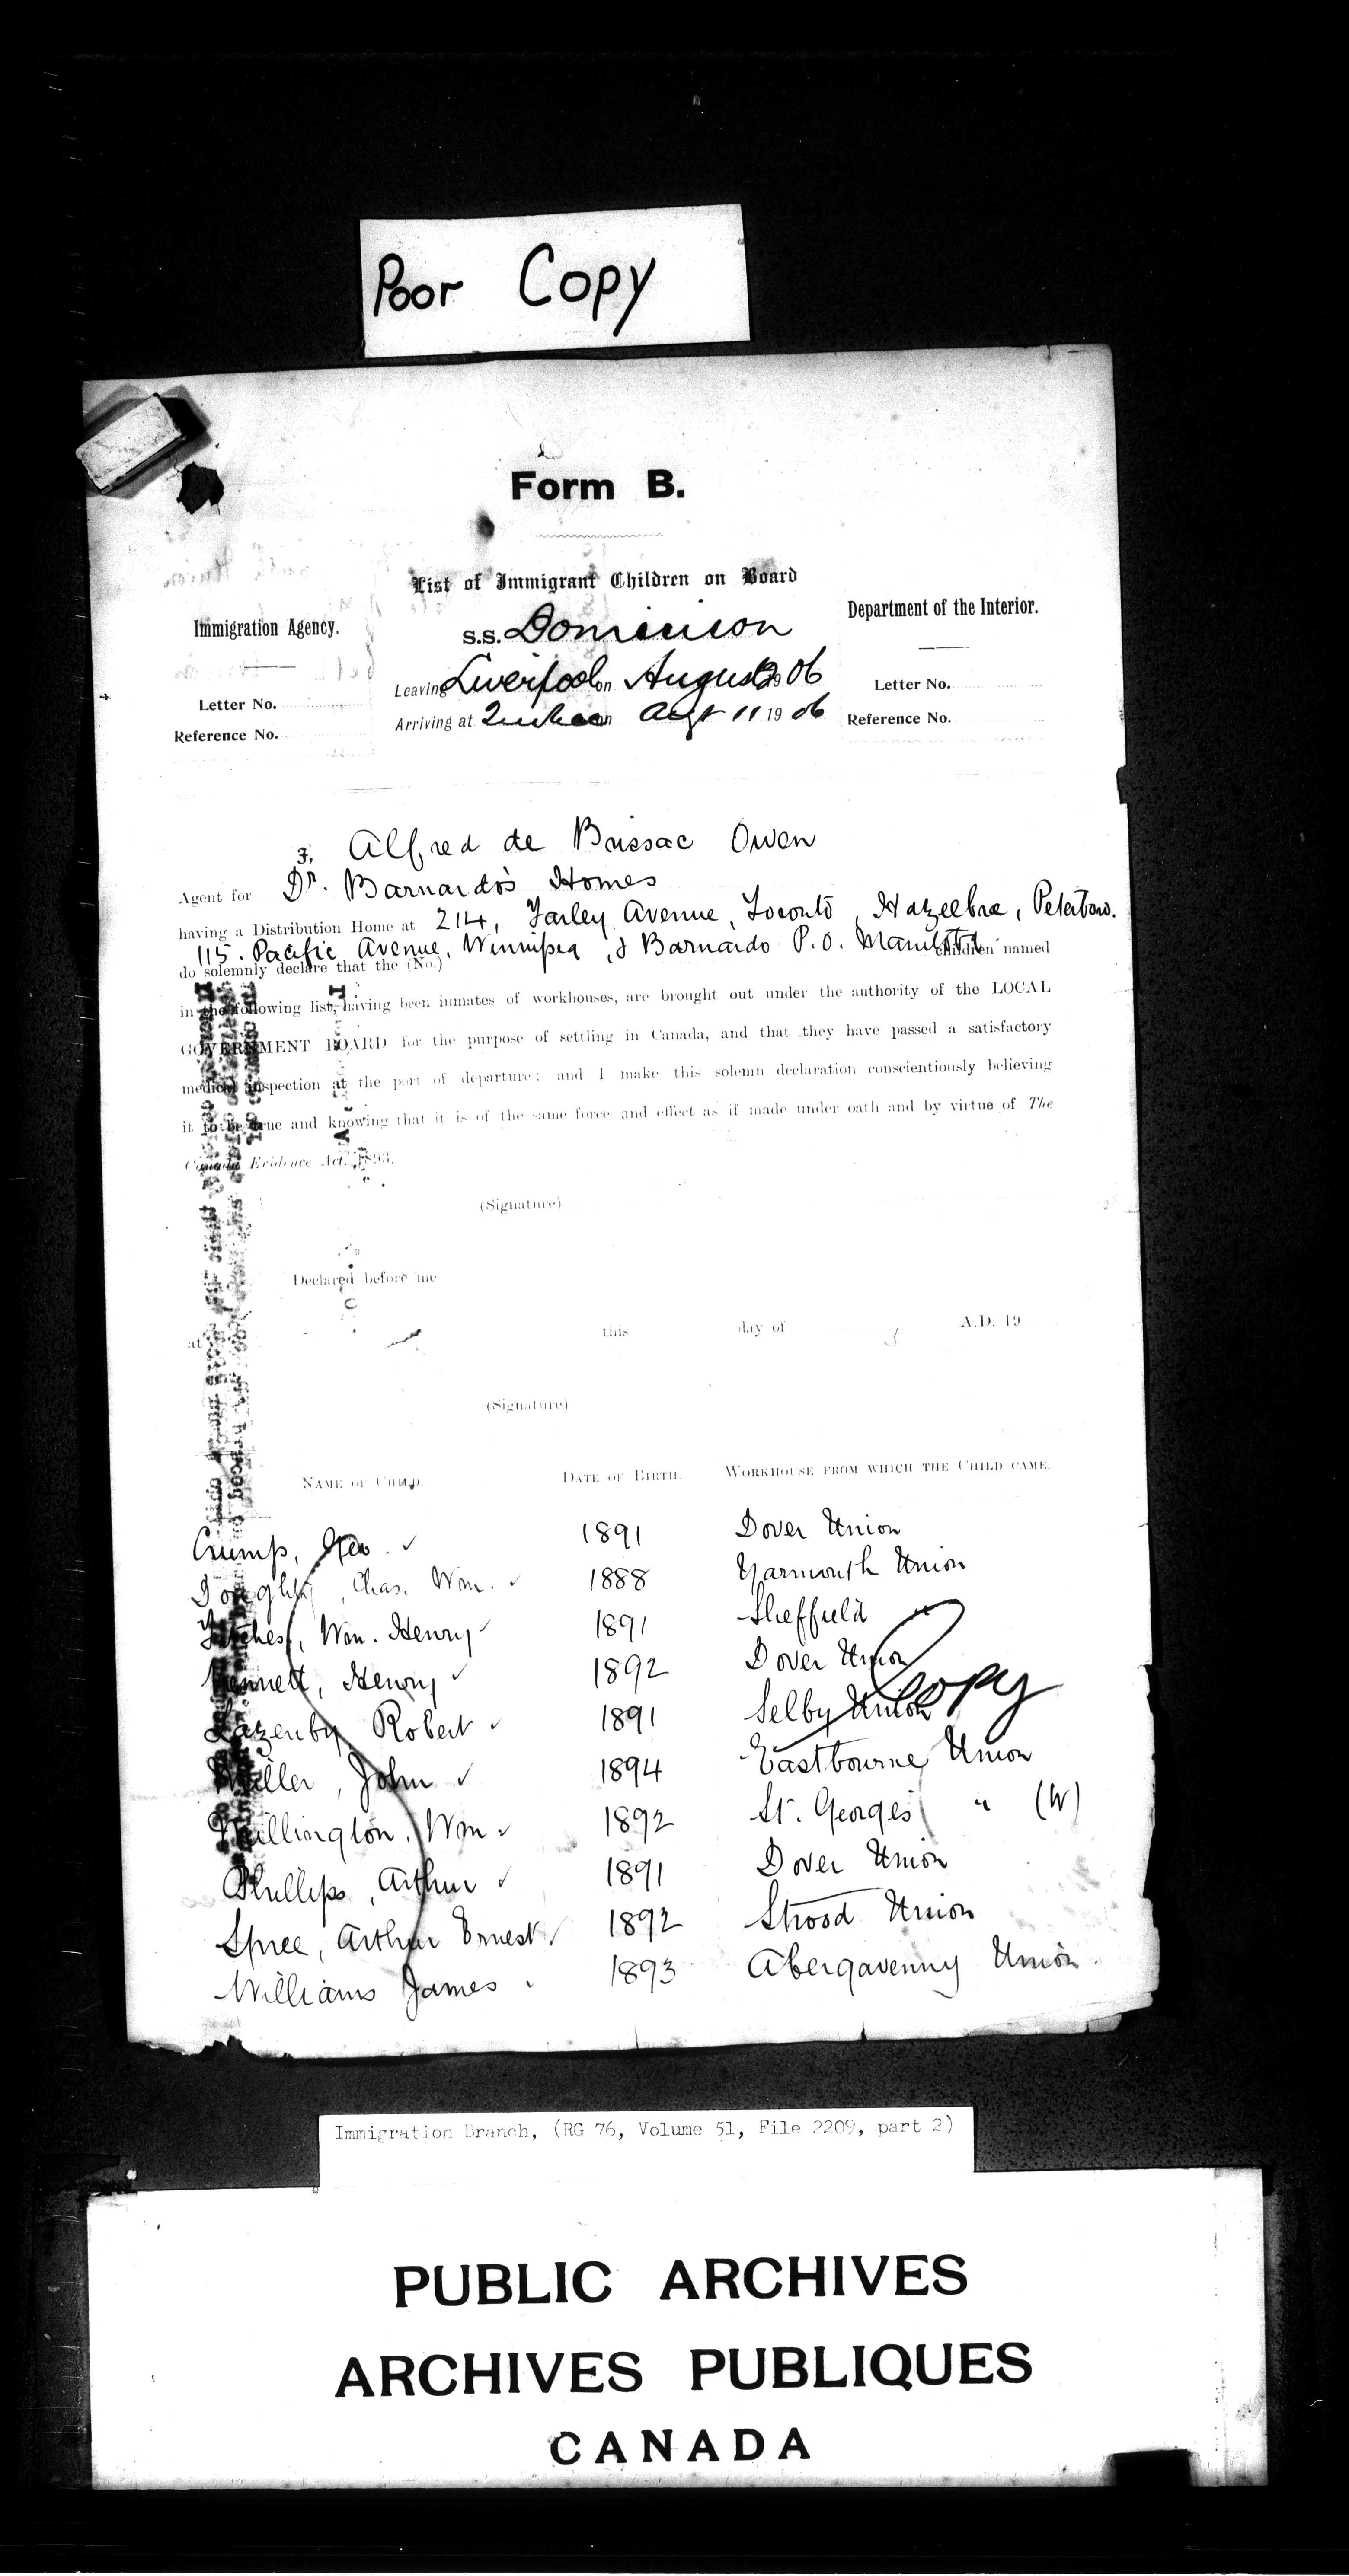 Poor Copy
Form B.
List of Immigrant Children on Board
Immigration Agency.
Department of the Interior.
S.S. Dominion
Leaving Liverpool on August 2 1906
Letter No.
Letter No.
Arriving at Quebec on Augt 11 1906
Reference No.
Reference No.
I, Alfred de Brissac Owen
Agent for Dr. Barnardo's Homes
having a Distribution Home at 214, Farley Avenue, Toronto, Hazelbrae, Peterboro.
115. Pacific Avenue, Winnipeg, & Barnardo P.O. Manitoba
do solemnly declare that the (No.) children named
in the following list, having been inmates of workhouses, are brought out under the authority of the LOCAL
GOVERNMENT BOARD for the purpose of settling in Canada, and that they have passed a satisfactory
medical inspection at the port of departure; and I make this solemn declaration conscientiously believing
it to be true and knowing that it is of the same force and effect as if made under oath and by virtue of The
Canada Evidence Act, 1893.
(Signature)
Declared before me
at this day of A.D. 19
(Signature)
NAME OF CHILD. DATE OF BIRTH. WORKHOUSE FROM WHICH THE CHILD CAME.
Crump, Geo. ✓ 1891 Dover Union
Doughty, Chas. Wm. ✓ 1888 Yarmouth Union
Fitches, Wm. Henry ✓ 1891 Sheffield "
Kennett, Henry ✓ 1892 Dover Union
Copy
Lazenby Robert ✓ 1891 Selby Union
Miller, John ✓ 1894 Eastbourne Union
Millington, Wm ✓ 1892 St. Georges " (W)
Phillips, Arthur ✓ 1891 Dover Union
Spree, Arthur Ernest ✓ 1892 Strood Union
Williams James 1893 Abergavenny Union.
Immigration Branch, (RG 76, Volume 51, File 2209, part 2)
PUBLIC ARCHIVES
ARCHIVES PUBLIQUES
CANADA